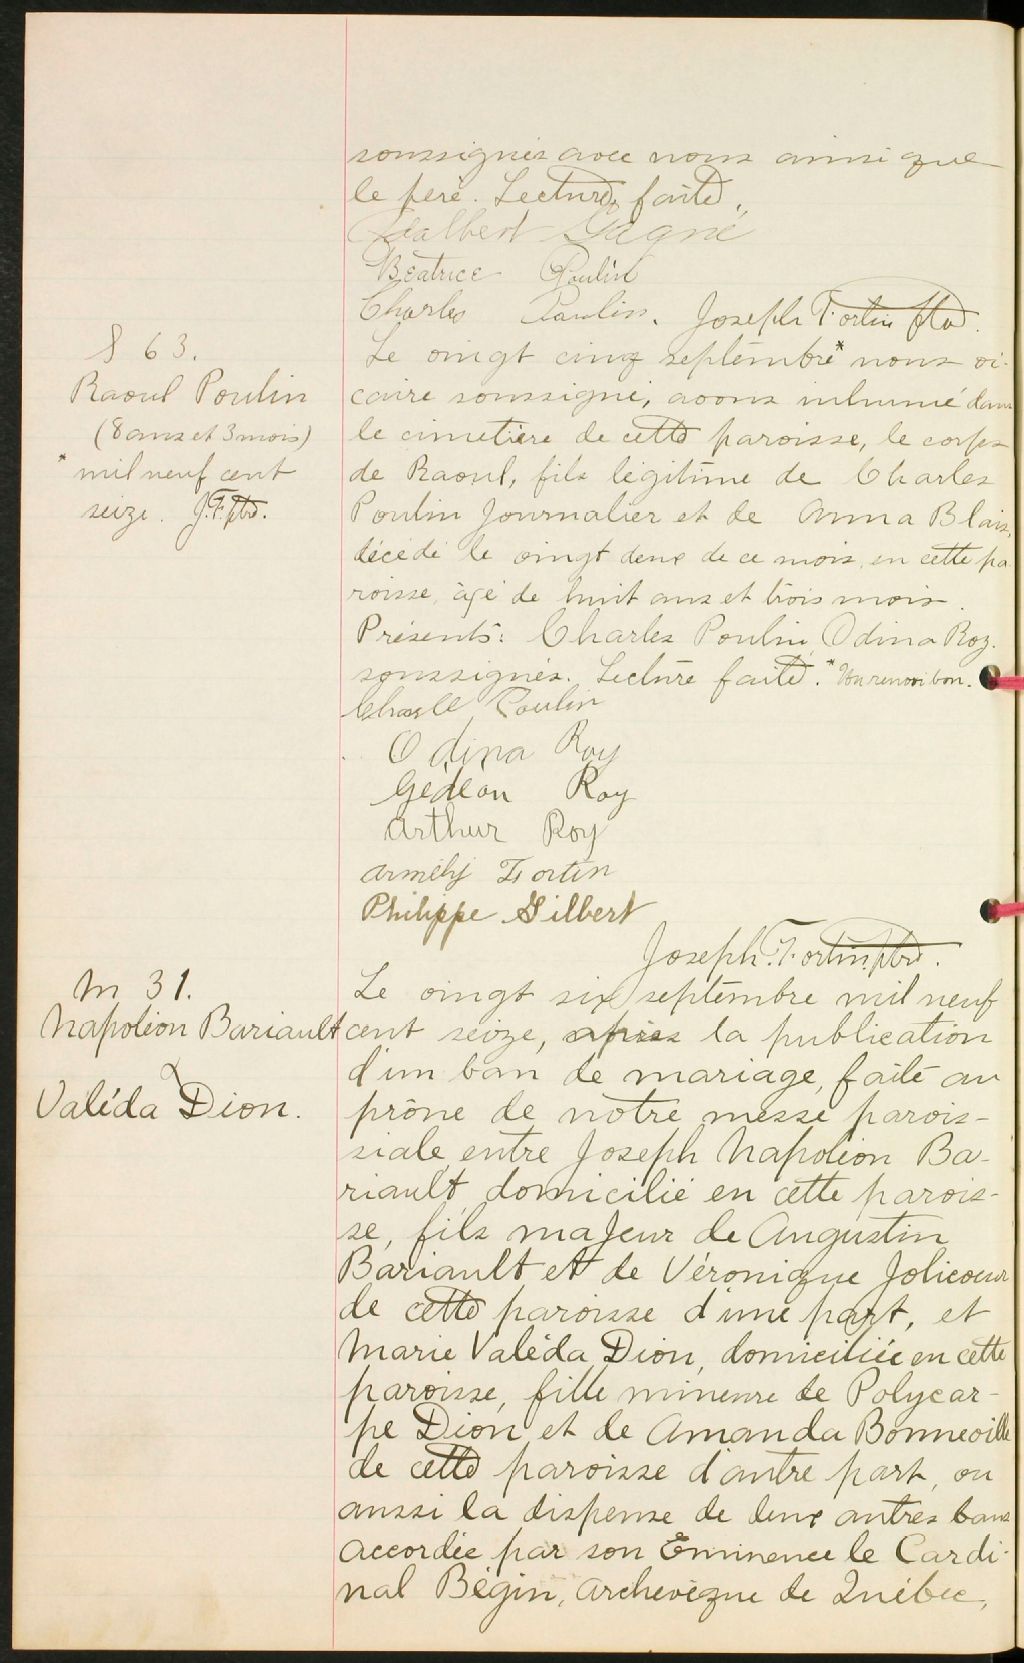 soussignés avec nous ainsi que
le père. Lecture faite.
Adalbert Gagné
Béatrice Poulin
Charles Poulin. Joseph Fortin ptre.
S 63.
Raoul Poulin
(8 ans et 3 mois)
* mil neuf cent
seize. J.F. ptre.
Le vingt cinq septembre* nous vi-
caire soussigné, avons inhumé dans
le cimetière de cette paroisse, le corps
de Raoul, fils légitime de Charles
Poulin Journalier et de Anna Blais,
décédé le vingt deux de ce mois, en cette pa
roisse, âgé de huit ans et trois mois.
Présents: Charles Poulin, Odina Roy.
soussignés. Lecture faite. * Un renvoi bon.
Charle Poulin
Odina Roy
Gédéon Roy
Arthur Roy
Fortin
Philippe Gilbert
Joseph Fortin ptre.
M 31.
Napoléon Bariault
&
Valéda Dion.
Le vingt six septembre mil neuf
cent seize, après la publication
d'un ban de mariage, faite au
prône de notre messe parois-
siale, entre Joseph Napoléon Ba-
riault, domicilié en cette parois-
se, fils majeur de Augustin
Bariault et de Véronique Jolicoeur
de cette paroisse d'une part, et
Marie Valéda Dion, domiciliée en cette
paroisse, fille mineure de Polycar-
pe Dion et de Amanda Bonneville
de cette paroisse d'autre part, vu
aussi la dispense de deux autres bans
accordée par son Eminence le Cardi-
nal Bégin, Archevêque de Québec,